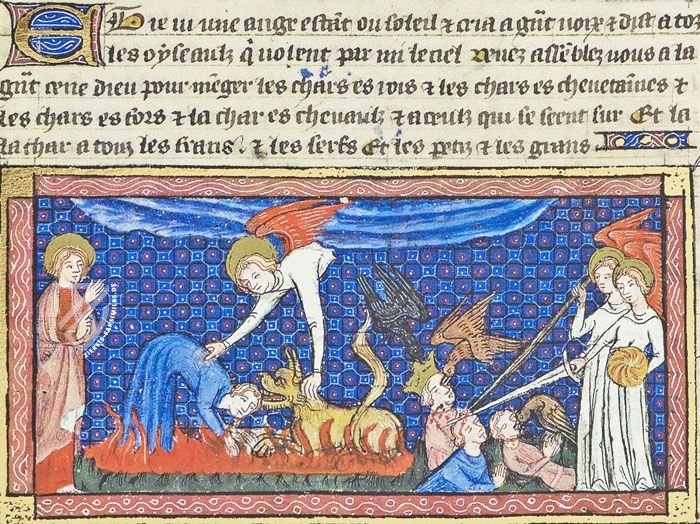 Et ie ui une ange estãt ou soleil ⁊ cria a gñt uoix ⁊ dist a toz
les oyseaulz q̃ uolent par mi le ciel uenez assẽblez uous a la
gñt cene dieu pour mẽger les chars es rois ⁊ les chars es cheuetaines ⁊
les chars es fors ⁊ la char es cheuaulz ⁊ a ceulz qui se seent sur Et la
la char a touz les frans ⁊ les serfs Et les petiz ⁊ les grans